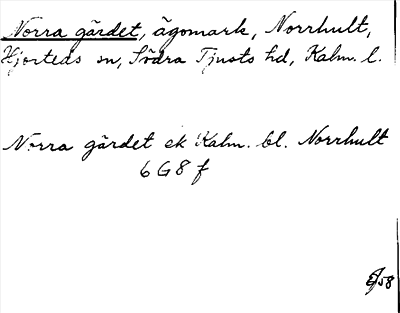 Norra gärdet, ägomark, Norrhult,
Hjorteds sn, Södra Tjusts hd, Kalm. l.
Norra gärdet ek Kalm. bl. Norrhult
6 G 8 f
58